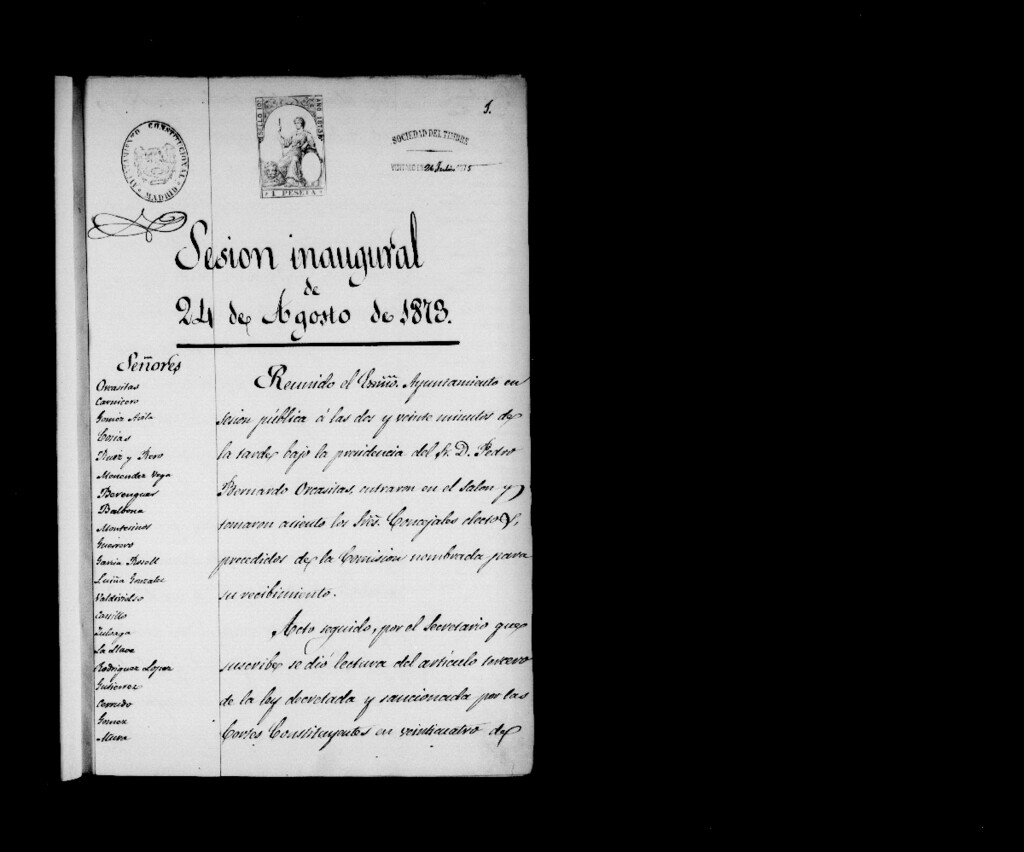 1.
AYUNTAMIENTO CONSTITUCIONAL
MADRID
SELLO 10º
AÑO 1873
1 PESETA
SOCIEDAD DEL TIMBRE
VISITADO EN 26 Julio 1875
Sesion inaugural
de
24 de Agosto de 1873.
Señores
Orcasitas
Carnicero
Gomez Avila
Ruiz y Rero
Menendez Vega
Berenguer
Balbona
Montesinos
Guerrero
Garcia Rosell
Luiña Gonzalez
Valdivielso
Castillo
Zuloaga
La Llave
Rodriguez Lopez
Gutierrez
Cerrudo
Gomez
Mura
Reunido el Exmo. Ayuntamiento en
sesion pública á las dos y veinte minutos de
la tarde bajo la presidencia del Sr. D. Pedro
Bernardo Orcasitas, entraron en el salon y
tomaron asiento los Sres. Concejales electos,
precedidos de la Comision nombrada para
su recibimiento.
Acto seguido, por el Secretario que
suscribe se dió lectura del artículo tercero
de la ley decretada y sancionada por las
Cortes Constituyentes en veinticuatro de